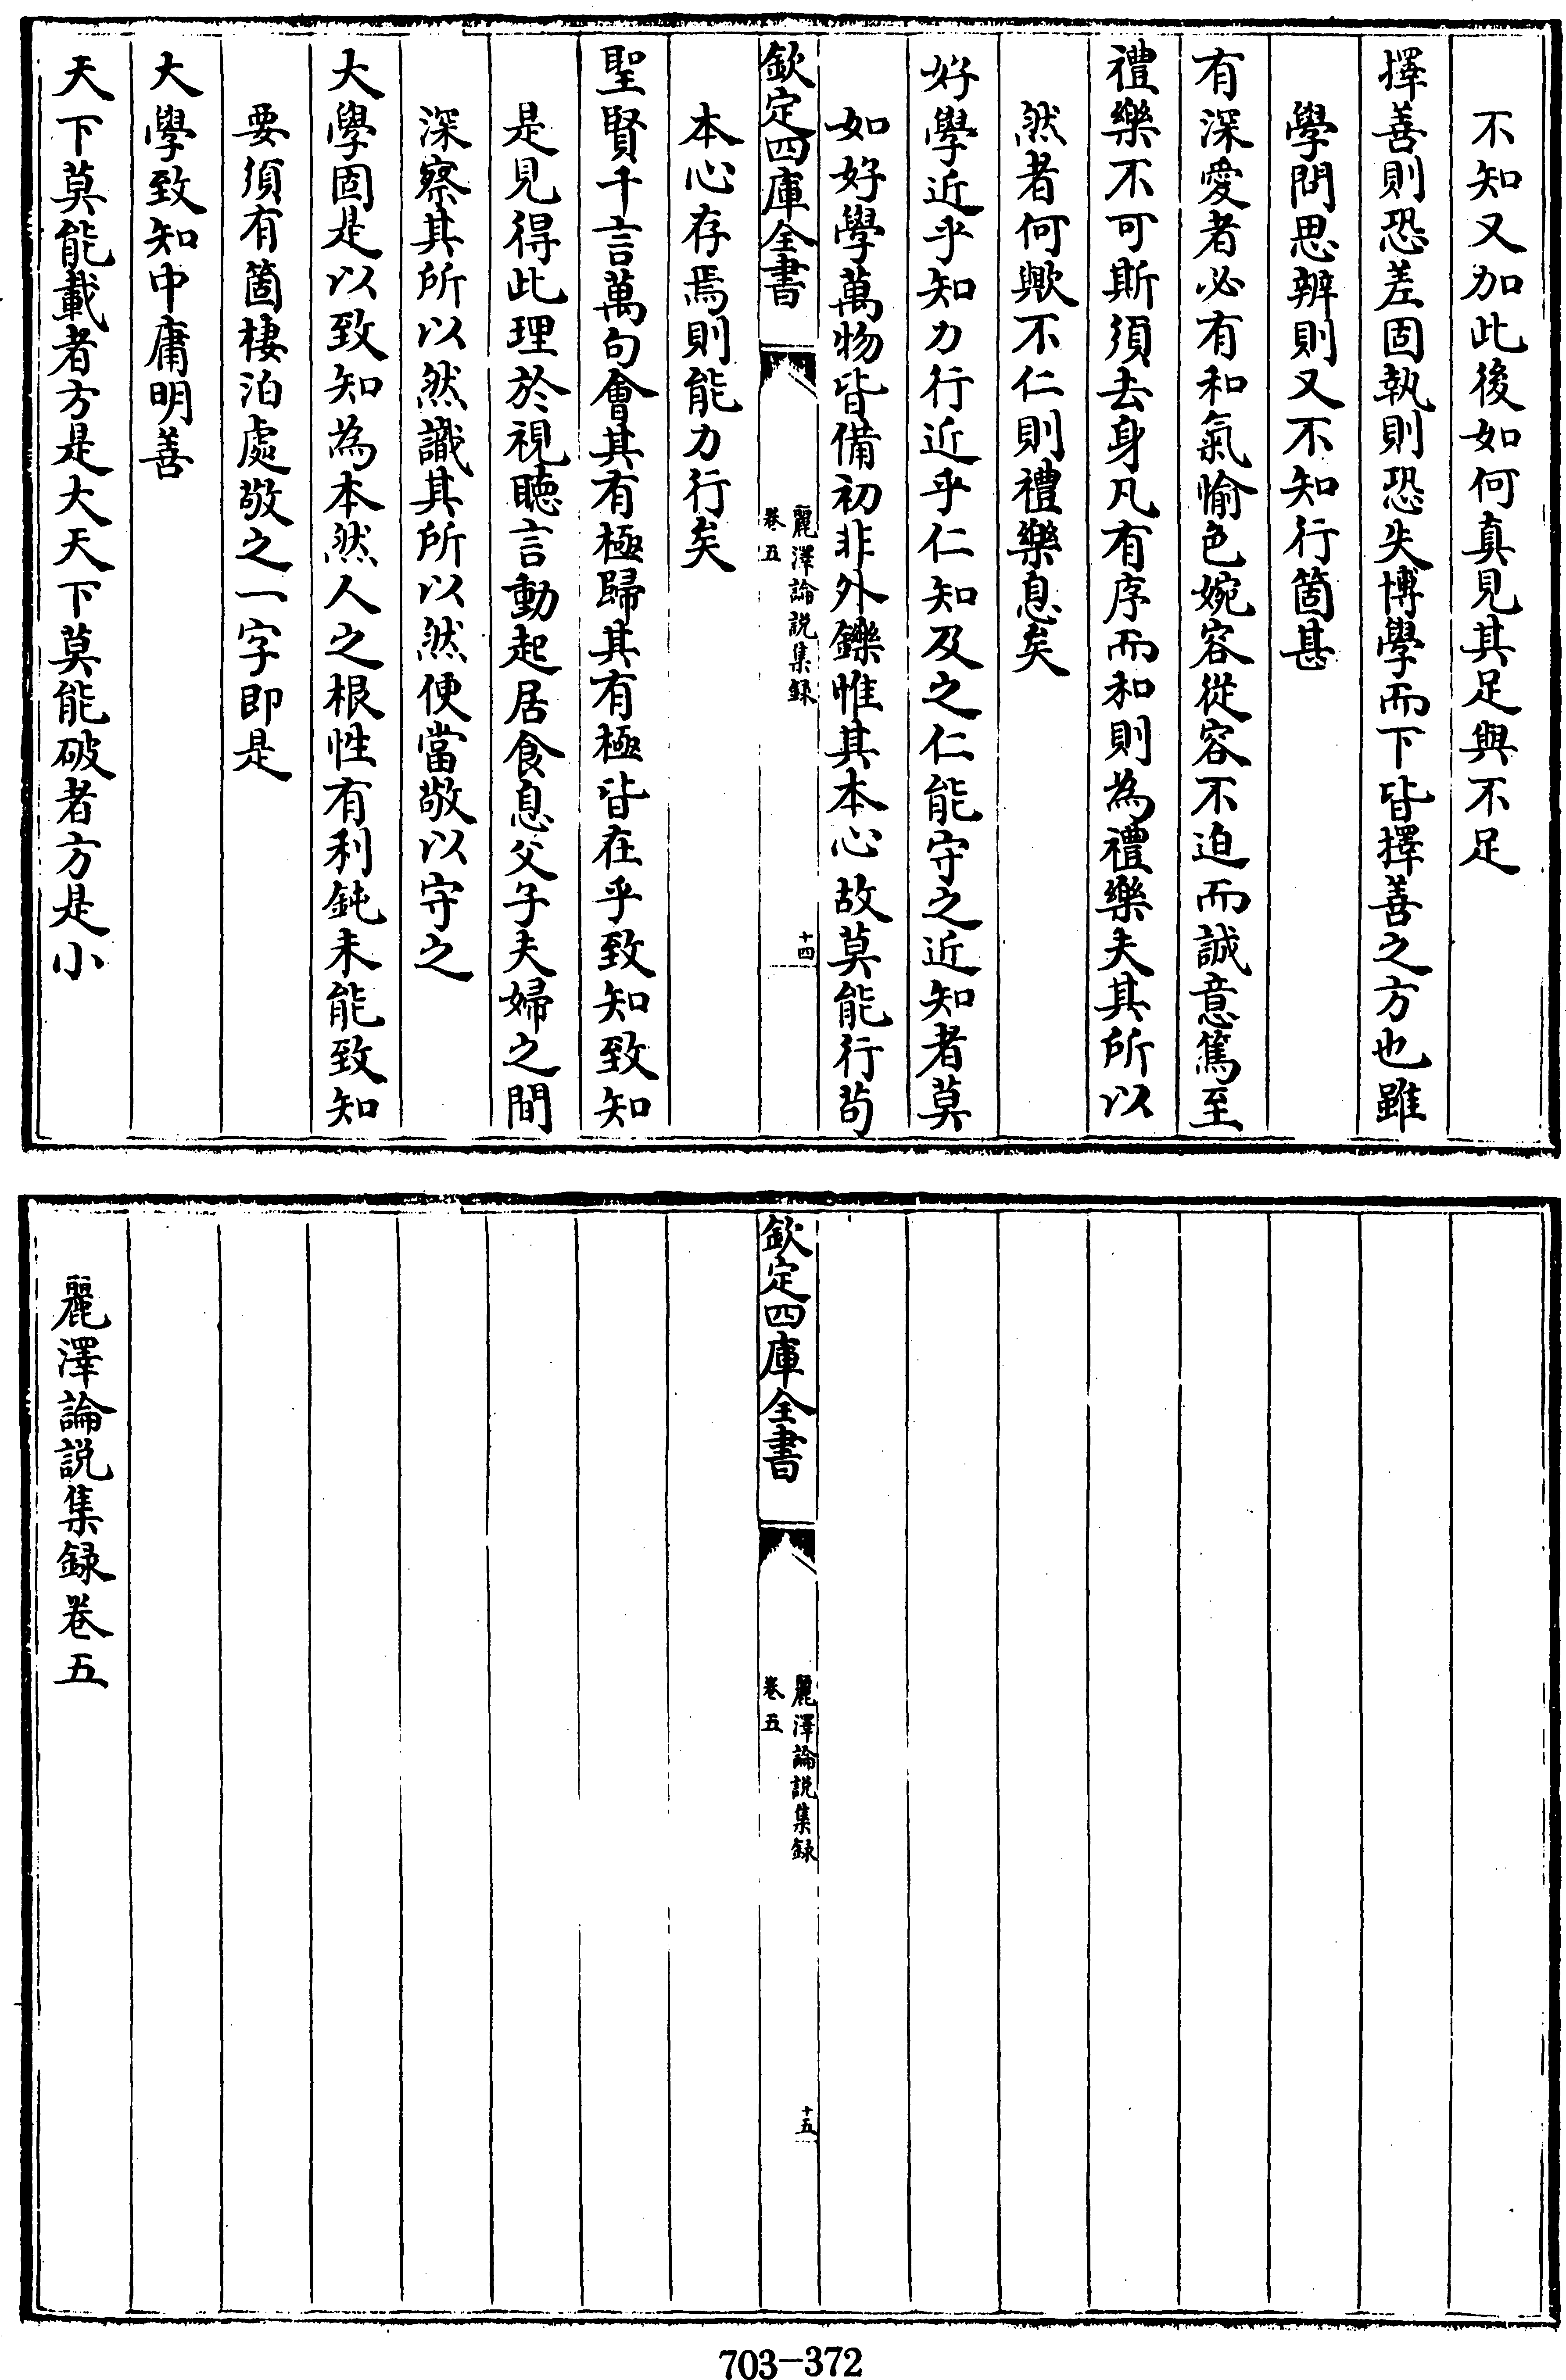 不知又加此後如何真見其足與不足
擇善則恐差固執則恐失博學而下皆擇善之方也雖
學問思辨則又不知行箇甚
有深愛者必有和氣愉色婉容從容不迫而誠意篤至
禮樂不可斯須去身凡有序而和則為禮樂夫其所以
然者何歟不仁則禮樂息矣
好學近乎知力行近乎仁知及之仁能守之近知者莫
如好學萬物皆備初非外鑠惟其本心故莫能行茍
欽定四庫全書
麗澤論説集録
卷五
十四
本心存焉則能力行矣
聖賢千言萬句會其有極歸其有極皆在乎致知致知
是見得此理於視聽言動起居食息父子夫婦之間
深察其所以然識其所以然便當敬以守之
大學固是以致知為本然人之根性有利鈍未能致知
要須有箇棲泊處敬之一字即是
大學致知中庸明善
天下莫能載者方是大天下莫能破者方是小
欽定四庫全書
麗澤論説集録
卷五
十五
麗澤論説集録卷五
703-372